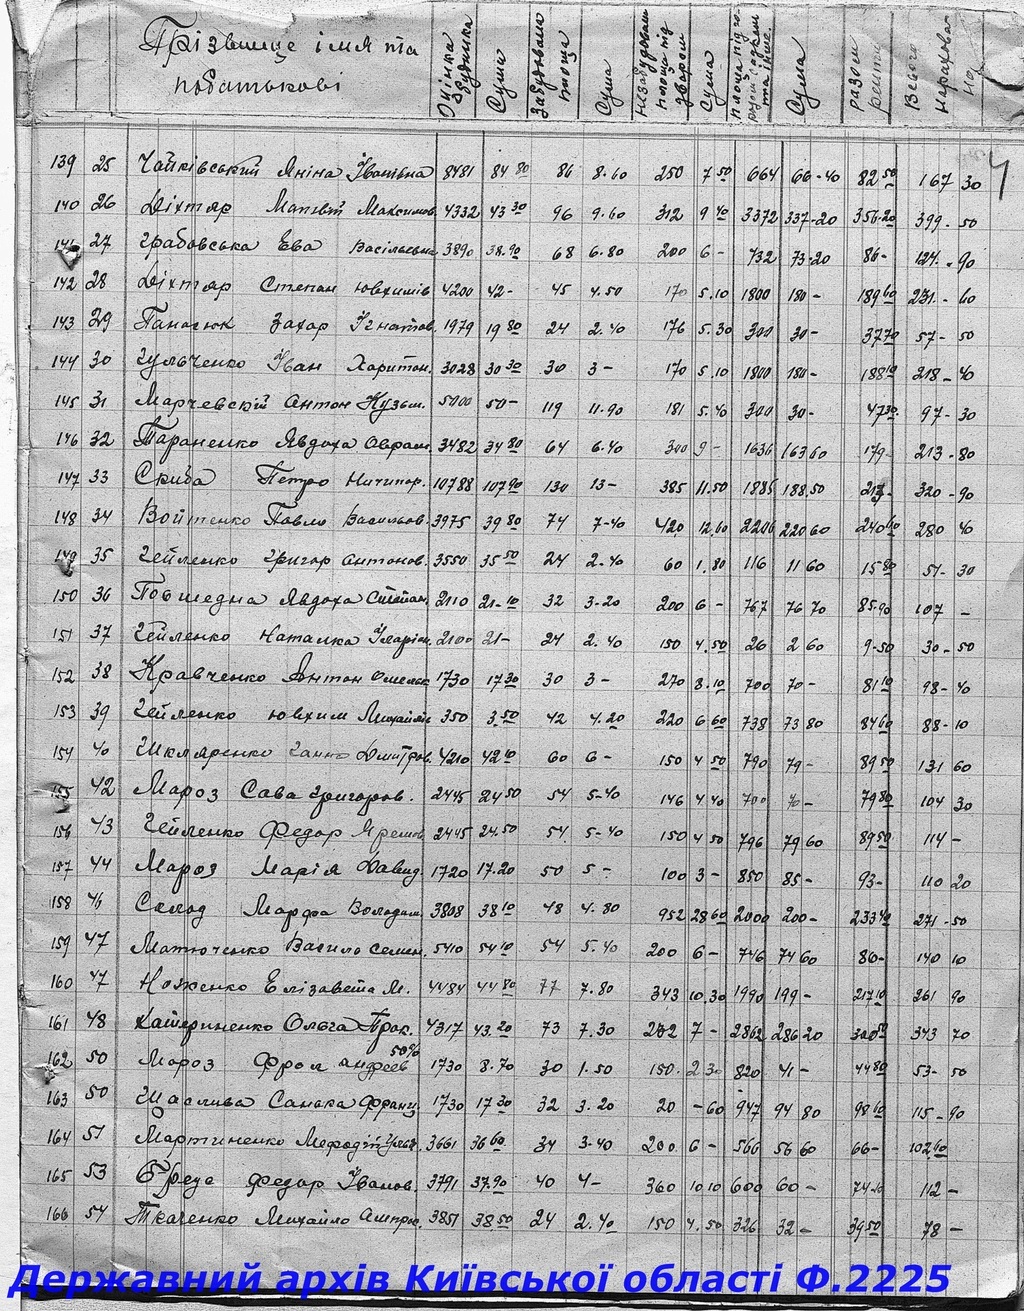 Прізвище імя та побатькові Оцінка будинка Сума Забудована площа Сума Незабудована площа під двором Сума площа під го- Сума разом ренти Всього
4
139 25 Чайківський Яніна Іванівна 8481 84 80 86 8.60 250 7 50 664 66-40 82 50 167 30
140 26 Діхтяр Матвій Максимов. 4332 43 30 96 9.60 312 9 40 3372 337-20 356-20 399-50
27 Грабовська Ева Васільевна 3890 38.90 68 6.80 200 6- 732 73-20 86- 124-90
142 28 Діхтяр Степан Ювхимів 4200 42- 45 4.50 170 5.10 1800 180- 189 60 231-60
143 29 Панасюк Захар Ігнатов. 1979 19 80 24 2.40 176 5.30 300 30- 37 70 57-50
144 30 Гульченко Іван Харитон. 3028 30 30 30 3- 170 5.10 1800 180- 188 10 218-40
145 31 Марчевскій Антон Кузьм. 5000 50- 119 11.90 181 5.40 300 30- 47 30 97-30
146 32 Тараненко Явдоха Оврам. 3482 34 80 64 6.40 300 9- 1636 163 60 179- 213-80
147 33 Скиба Петро Ничипор. 10788 107 90 130 13- 385 11.50 1885 188.50 213- 320-90
148 34 Войтенко Павло Васильов. 3975 39 80 74 7-40 420 12.60 2206 220 60 240 60 280 40
149 35 Гейленко Григор Антонов. 3550 35 50 24 2.40 60 1.80 116 11 60 15 80 51-30
150 36 Повшедна Явдоха Степан. 2110 21-10 32 3-20 200 6- 767 76 70 85-90 107-
151 37 Гейленко Наталка Іларіон. 2100 21- 24 2.40 150 4.50 26 2 60 9-50 30-50
152 38 Кравченко Антон Омельк 1730 17 30 30 3- 270 8.10 700 70- 81 10 98-40
153 39 Гейленко Ювхим Михайлів 350 3.50 42 4.20 220 6 60 738 73 80 84 60 88-10
154 40 Шкляренко Ганна Дмитров. 4210 42 10 60 6- 150 4 50 790 79- 89 50 131 60
155 42 Мароз Сава Григоров. 2445 24 50 54 5-40 146 4 40 700 70- 79 80 104 30
156 43 Гейленко Федор Яремов 2445 24.50 54 5-40 150 4 50 796 79 60 89 50 114-
157 44 Мароз Марія Давид. 1720 17.20 50 5- 100 3- 850 85- 93- 110 20
158 Склод Марфа Володим. 3808 38 10 48 4.80 952 28 60 2000 200- 233 40 271-50
159 47 Матюченко Васило Семен. 5410 54 10 54 5.40 200 6- 746 74 60 86- 140 10
160 47 Ноженко Елізавета М. 4484 44 80 77 7.80 343 10.30 1990 199- 217 10 261 90
161 48 Катериненко Ольга Прок. 4317 43.20 73 7.30 232 7- 2862 286 20 343 70
162 50 Мароз Фрол Андреев 50% 1730 8.70 30 1.50 150. 2 30 820 41- 44 80 53-50
163 50 Щаслива Санька Франц. 1730 17 30 32 3.20 20 -60 947 94 80 98 60 115-90
164 51 Мартиненко Мефодій 3661 36 60 34 3-40 200 6- 566 56 60 66- 102 60
165 53 Бреус Федор Іванов. 3791 37.90 40 4- 360 10 10 600 60- 74-10 112-
166 54 Ткаченко Михайло Ампрос. 3851 38 50 24 2.40 150 4.50 326 32- 39 50 78-
Державний архів Київської області Ф.2225